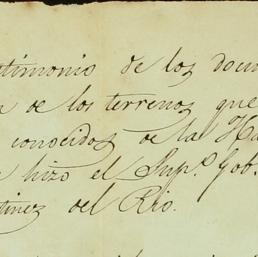 timonio de los docu
n de los terrenos que
conocidos de la Ha
e hizo el Sup.º Gob.
tinez del Rio.